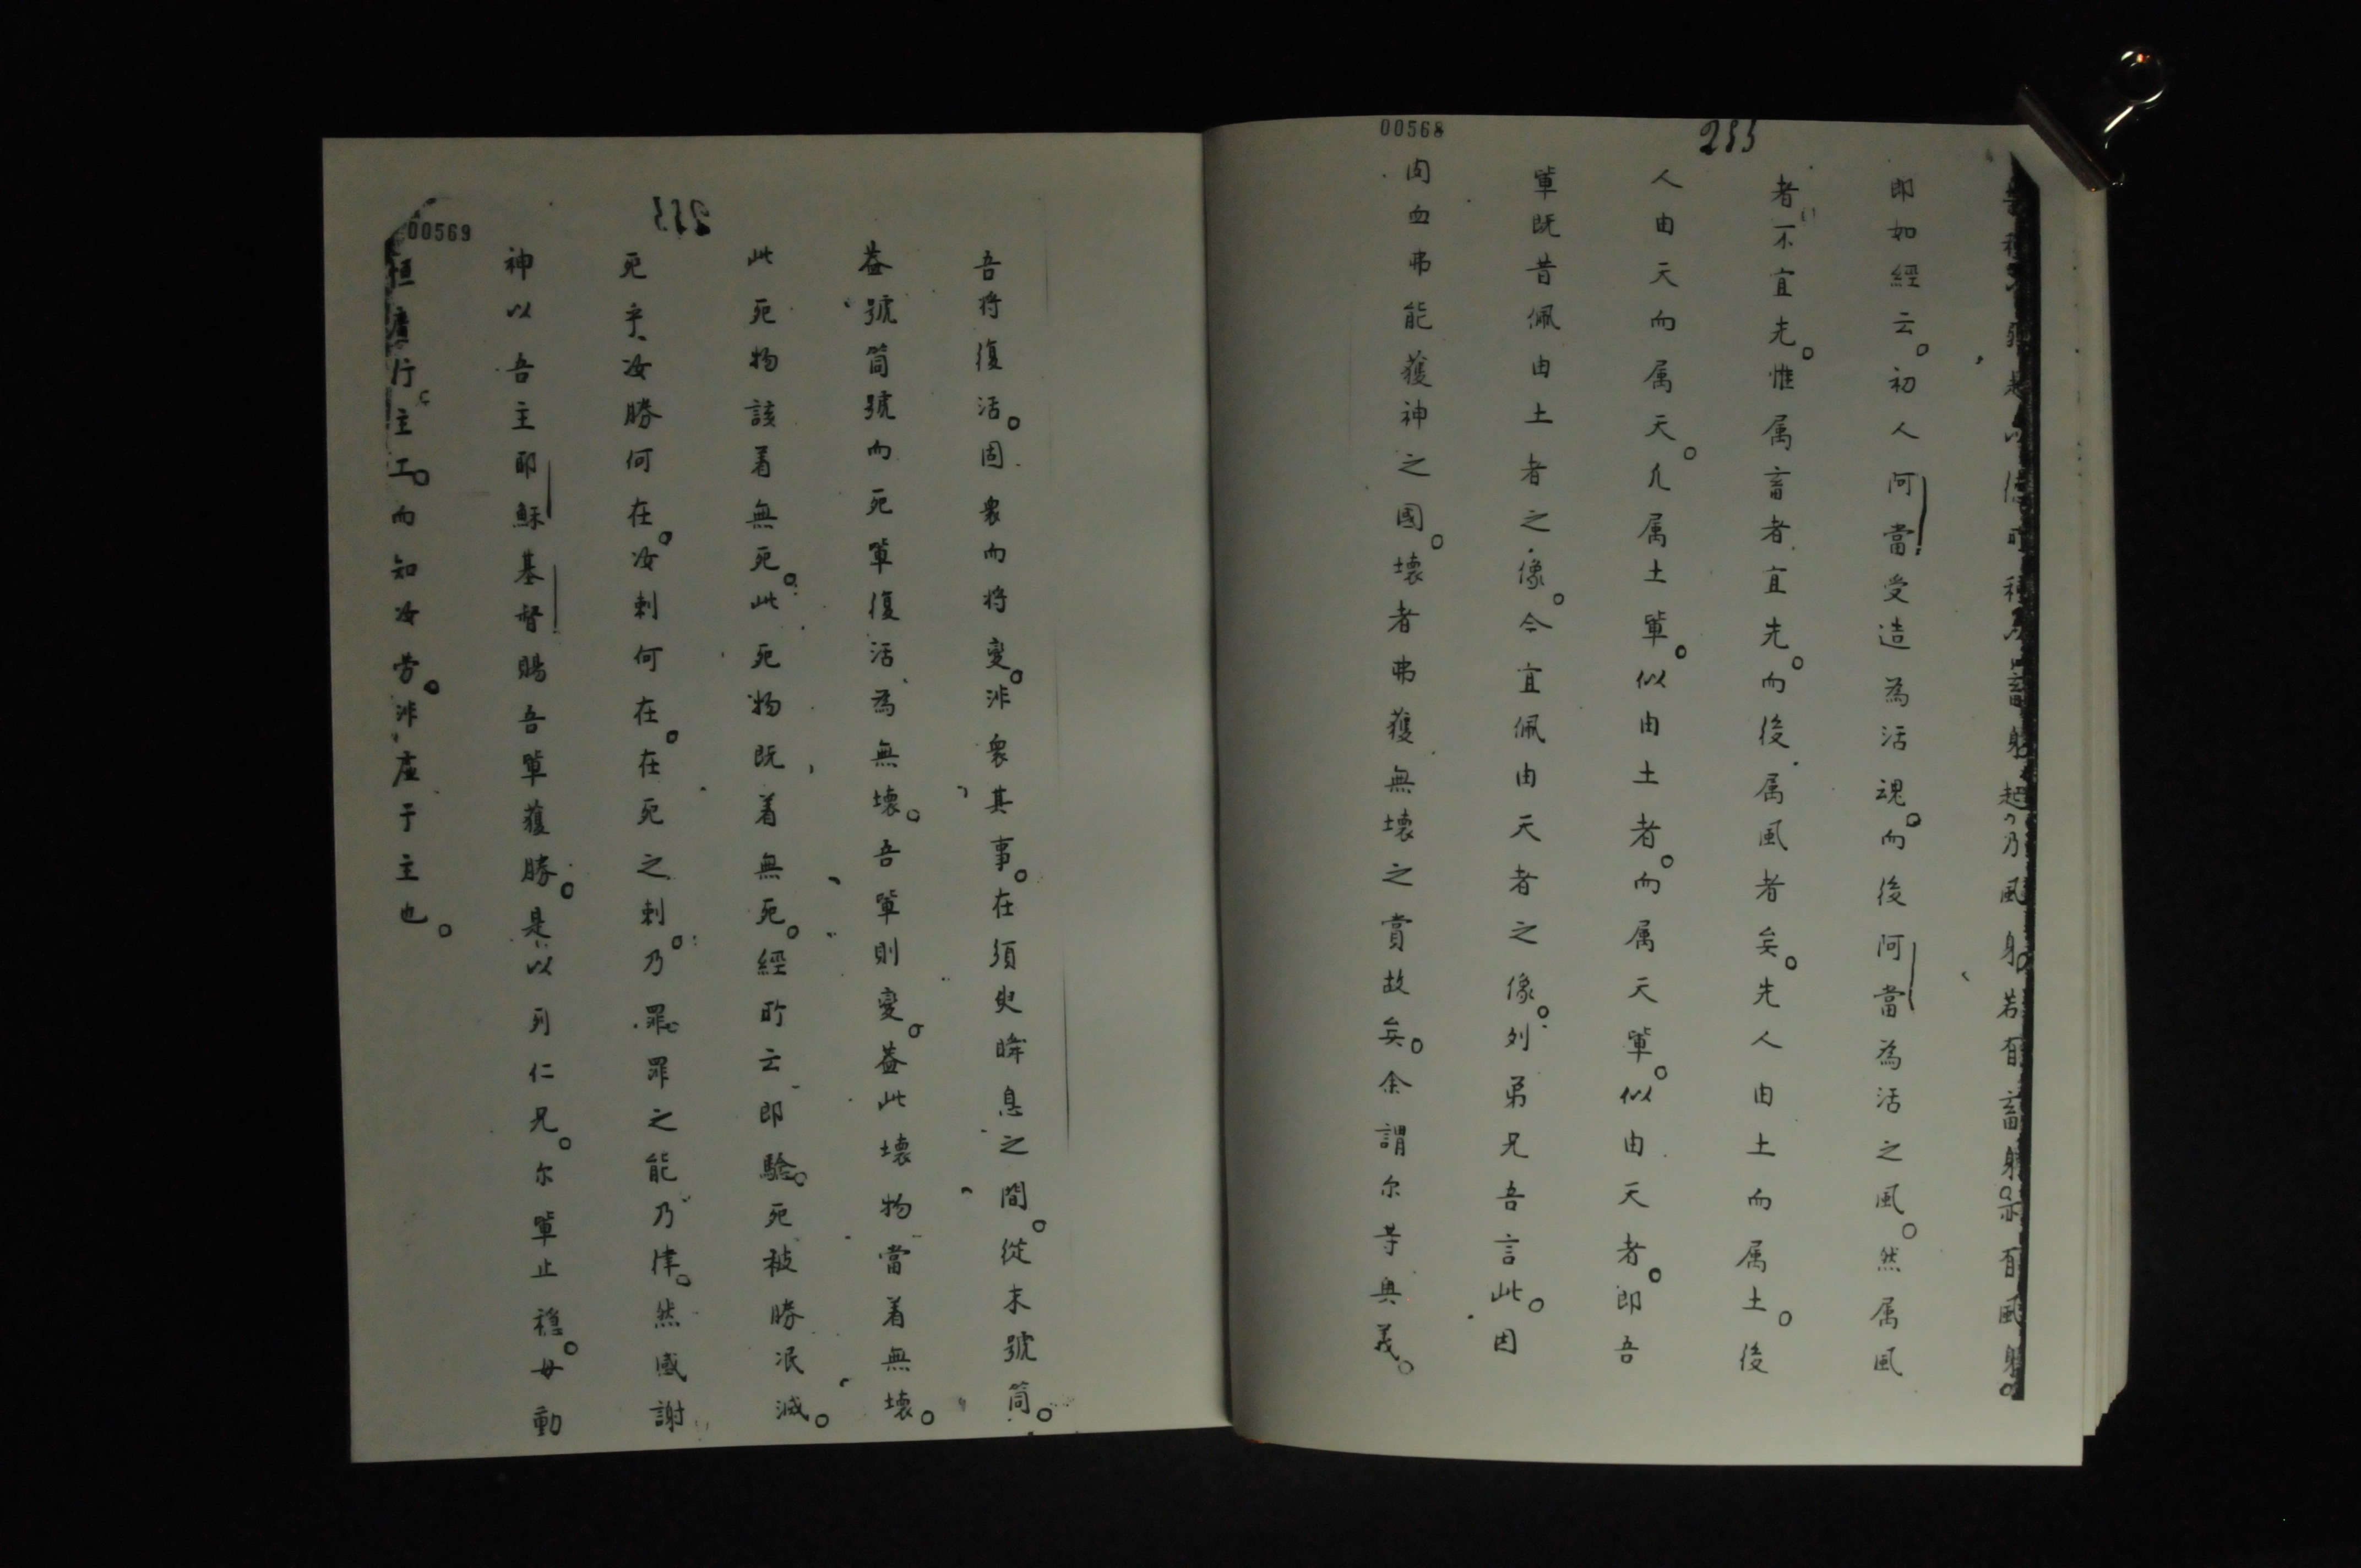 00568
233
以 身 起乃風身。若有畜身。亦有風身。
即如經云。初人阿當受造為活魂。而後阿當為活之風。然属風
者不宜先。惟属畜者宜先。而後属風者矣。先人由土而属土。後
人由天而属天。凡属土軰。似由土者。而属天軰。似由天者。即吾
軰既昔佩由土者之像。今宜佩由天者之像。列弟兄吾言此。因
肉血弗能獲神之國。壊者弗獲無壊之賞故矣。余謂尔等奥義。
00569
233
吾将復活。固衆而将變。非衆其事。在須臾眸息之間。從末號筒。
葢號筒號而死軰復活為無壊。吾軰則變。葢此壊物當着無壊。
此死物該着無死。此死物既着無死。經所云即驗。死被勝泯滅。
死乎、汝勝何在。汝刺何在。在死之刺。乃罪。罪之能乃律。然感謝
神以吾主耶穌基督賜吾軰獲勝。是以列仁兄。尔軰止穏。毋動
恒廣行主工。而知汝劳。非虛于主也。